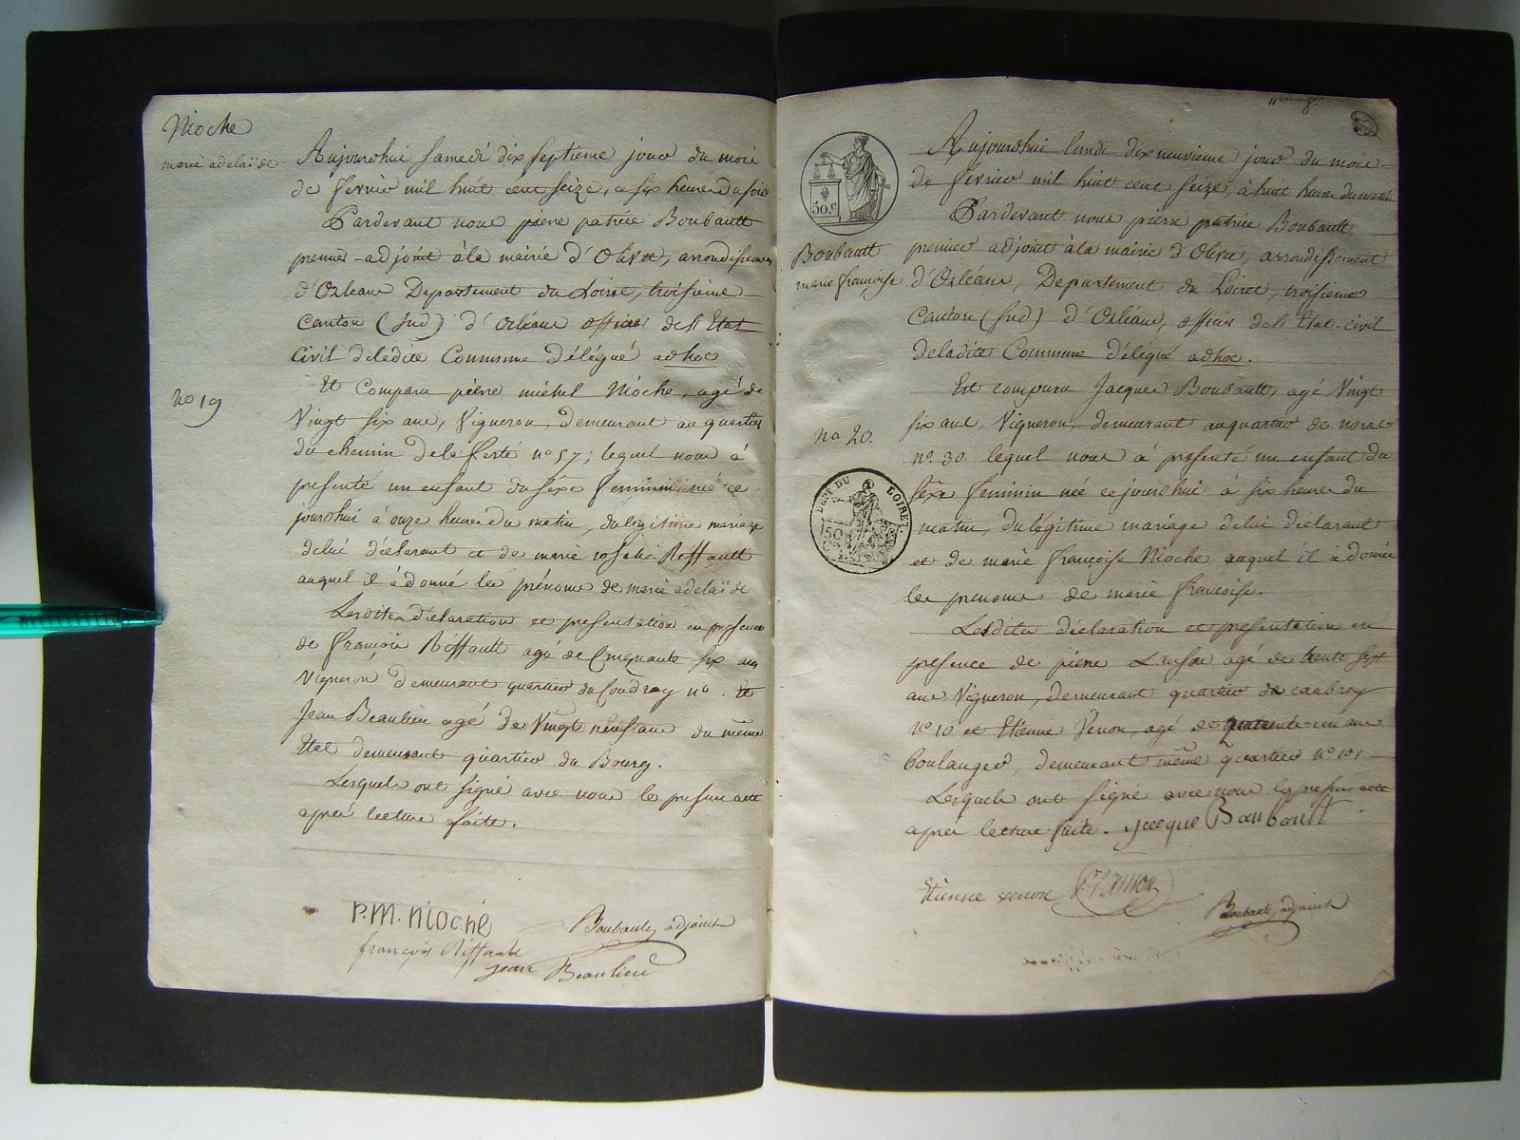 Nioche
marie adelaïde
Aujourdhui samedi dix septieme jour du mois
de fevrier mil huit cent seize, a six heure du soir
Pardevant nous pierre patrice Boubault
premier adjoint à la mairie d'Olivet, arrondissement
d'Orleans Departement du Loiret, troisieme
Canton (sud) d'Orléans officier de l'Etat
Civil deladite Commune délégué adhoc
Et Comparu pierre michel Nioche, agé de
no 19
Vingt six ans, Vigneron, demeurant au quartier
du chemin de la ferté no 57; lequel nous à
presenté un enfant du sexe feminin né ce
jourdhui à onze heure du matin, du legitime mariage
delui déclarant et de marie rosalie Riffault
auquel il à donné les prénoms de marie adelaï de
Lesdites déclaration et presentation en presence
de françois Riffault agé de Cinquante six ans
Vigneron demeurant quartier du Coudray no . Et
Jean Beaulieu agé de Vingt neuf ans du même
Etat demeurant quartier du Bourg.
Lesquels ont signé avec nous le present acte
après lecture faite.
P.M. Nioche
Boubault adjoint
françois Riffault
jean Beaulieu
50 c
Aujourdhui lundi dix neuvieme jour du mois
de fevrier mil huit cent seize, à huit heure du matin
Pardevant nous pierre patrice Boubault
Boubault
marie françoise
premier adjoint à la mairie d'Olivet, arrondissement
d'Orléans, Departement du Loiret, troisieme
Canton (sud) d'Orléans, officier de l'Etat-civil
deladite Commune délégué adhoc.
Est comparu Jacques Boubault, agé Vingt
no 20.
six ans, Vigneron, demeurant auquartier de
no 30 lequel nous à presenté un enfant du
DEPT DU LOIRET.
50
sexe feminin née cejourdhui à six heure du
matin, du légitime mariage delui déclarant
et de marie françoise Nioche auquel il à donné
les prenoms de marie françoise.
Lesdites déclaration et presentation en
presence de pierre agé de trente sept
ans Vigneron, demeurant quartier de caubray
no 10 et Etienne Venon, agé de quarante un ans
boulanger, demeurant même quartier no 101
Lesquels ont signé avec nous le present acte
après lecture faite. jacque Boubault
Etienne venon
Boubault adjoint